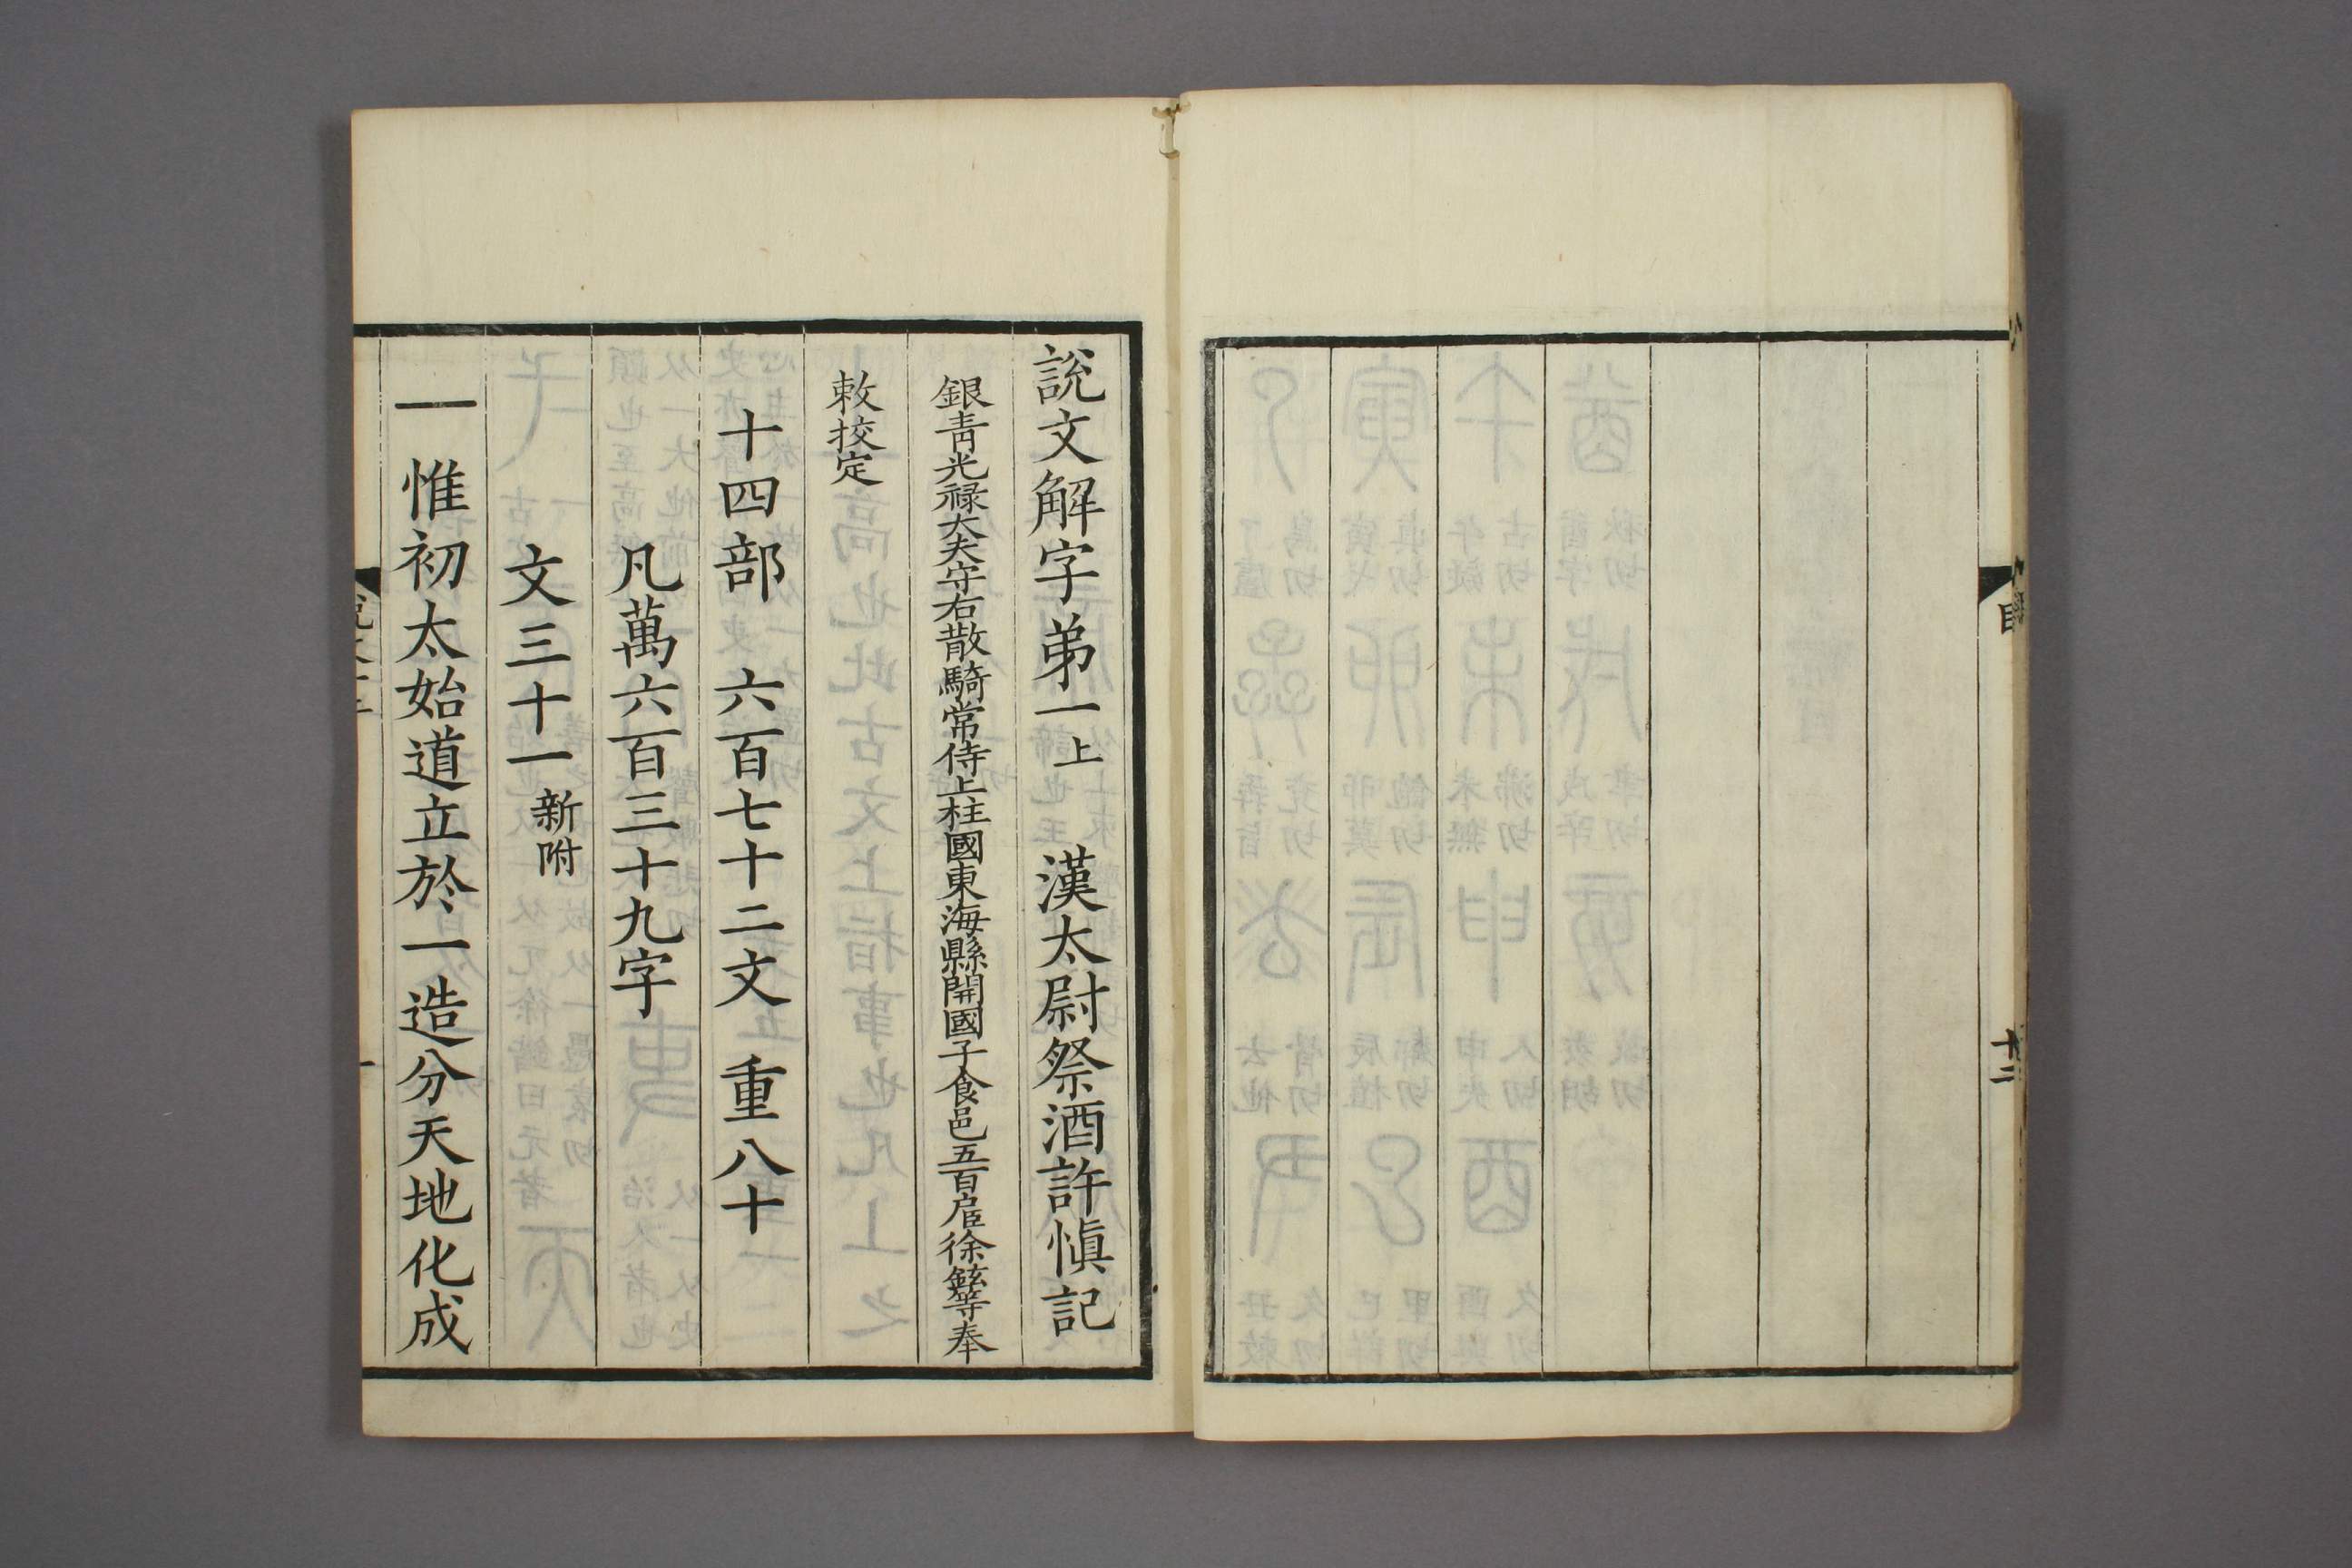 目
十二
說文解字弟一上 漢太尉祭酒許愼記
銀青光祿大夫守右散騎常侍上柱國東海縣開國子食邑五百戶臣徐鉉等奉
敕挍定
十四部 六百七十二文 重八十
凡萬六百三十九字
文三十一新附
一 惟初太始道立於一造分天地化成
一